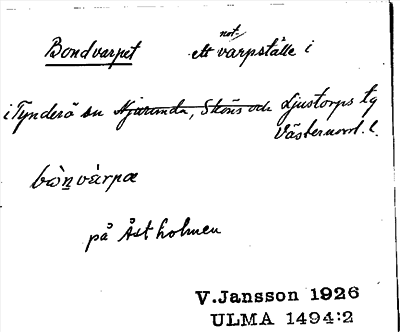 Bondvarpet ett not-varpställe i
i Tynderö sn Njurunda, Sköns och Ljustorps tg
Västernorrl. l.
bòn̠várpα
på Åstholmen
V.Jansson 1926
ULMA 1494:2